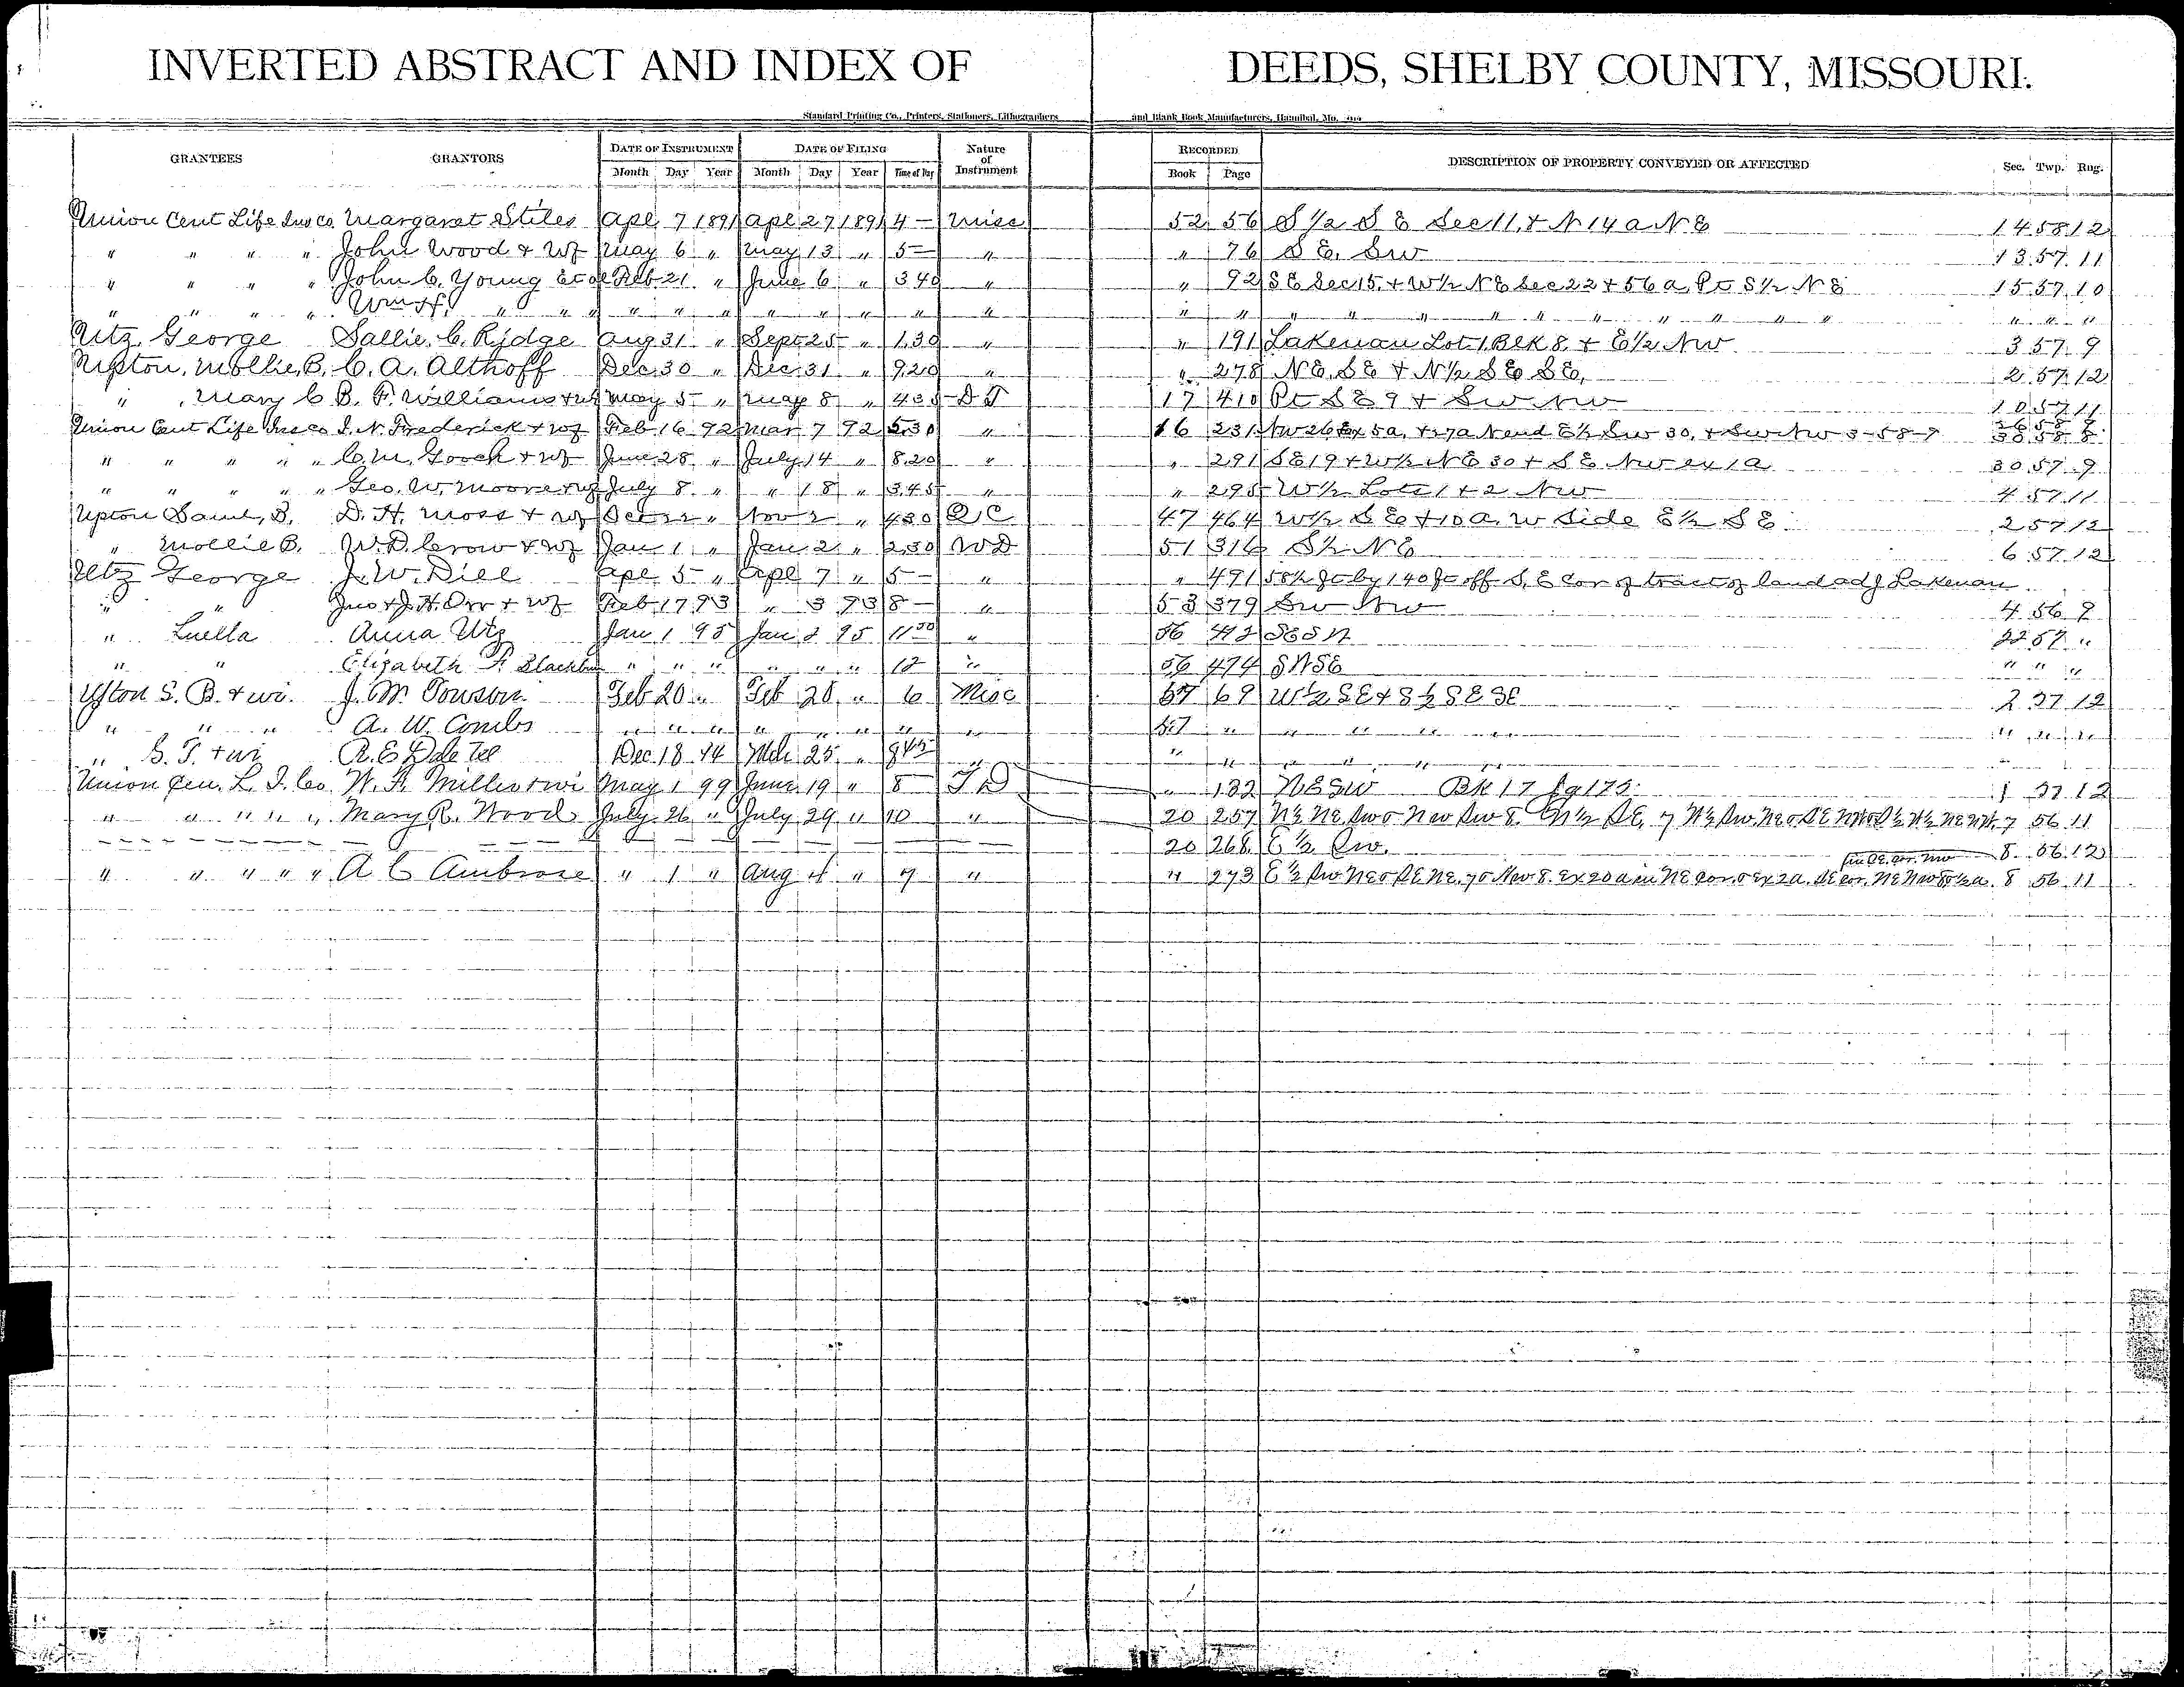 INVERTED ABSTRACT AND INDEX OF DEEDS, SHELBY COUNTY, MISSOURI.
Standard Printing Co., Printers, Stationers, Lithographers and Blank Book Manufacturers, Hannibal, Mo.
GRANTEES GRANTORS DATE OF INSTRUMENT DATE OF FILING Nature of Instrument RECORDED DESCRIPTION OF PROPERTY CONVEYED OR AFFECTED Sec. Twp. Rng.
Month Day Year Month Day Year Time of Day Book Page
Union Cent Life Ins Co. Margaret Stiles Apl 7 1891 Apl 27 1891 4 — Misc 52 56 S 1/2 S E Sec 11, & N 14 a N E 14 58 12
" " " " John Wood + Wf May 6 " May 13 " 5 — " " 76 S E, SW 13 57 11
" " " " John C. Young et al Feb 21 " June 6 " 3 40 " " 92 S E Sec 15, + W 1/2 N E Sec 22 + 56 a Pt S 1/2 N E 15 57 10
" " " " Wm H. " " " " " " " " " " " " " " " " " " " " " " " "
Utz George Sallie C. Ridge Aug 31 " Sept 25 " 1.30 " " 191 Lakenan Lot 1 Blk 8 + E 1/2 NW 3 57 9
Upton, Mollie B. C. A. Althoff Dec 30 " Dec 31 " 9.20 " " 278 N E, S E + N 1/2 S E S E, 2 57 12
" , Mary C B. F. Williams + wf May 5 " May 8 " 4 35 D T 17 410 Pt S E 9 + SW NW 10 57 11
Union Cent Life Ins Co I. N. Frederick + wf Feb 16 92 Mar 7 92 5.30 " 16 231 NW 26 Ex 5a, + 27a N end E 1/2 SW 30, + SW NW 3-58-9
" " " " " C. M. Gooch + Wf June 28 " July 14 " 8.20 " " 291 S E 19 + W 1/2 N E 30 + S E NW ex 1 a 30 57 9
" " " " " Geo. W. Moore + wf July 8 " " 18 " 3.45 " " 295 W 1/2 Lots 1 + 2 NW 4 57 11
Upton Saml, B. D. H. Moss + wf Oct " Nov 2 " 4 30 Q C 47 464 W 1/2 S E + 10 a. W Side E 1/2 S E 2 57 12
" Mollie B. W. D. Crow + Wf Jan 1 " Jan 2 " 2.30 W D 51 316 S 1/2 N E 6 57 12
Utz George J. W. Dill Apl 5 " Apl 7 " 5 — " " 491 58 1/2 ft by 140 ft off S, E Cor of tract of land adj Lakenan
" " Jno + J. H. Orr + Wf Feb 17 93 " 3 93 8 — " 53 379 SW NW 4 56 9
" Luella Anna Utz Jan 1 95 Jan 2 95 11 30 " 56 SESW 22 57 "
" " Elizabeth F. Blackburn " " " " " " 12 " 56 474 SWSE " " "
Upton S. B. + wi. J. M. Towson Feb 20 " Feb 20 " 6 Misc 57 69 W 1/2 SE + S 1/2 SE SE 2 57 12
" " " A. W. Combs " " " " " " " " 57 " " " " " " " " "
" S. T. + wi R. E. Dale Tee Dec 18 94 Mch 25 " 9 45 " " " " " "
Union Cen. L. I. Co. W. F. Miller + wi May 1 99 June 19 " 8 T D " 132 NESW Bk 17 pg 175 1 57 12
" " " " " Mary R. Wood July 26 " July 29 " 10 " 20 257 7 56 11
20 268 E 1/2 SW. 8 56 12
" " " " " A C Ambrose " 1 " Aug 4 " 9 " " 273 8 56 11